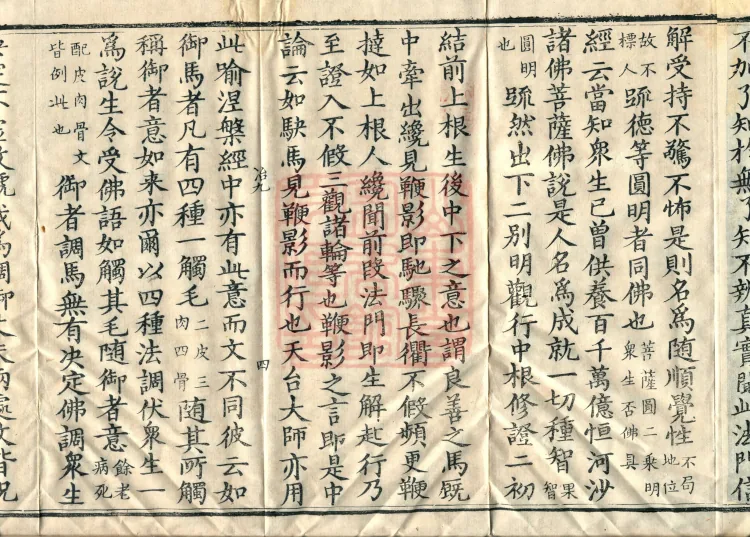 不加了知於無了知不辨真實聞此法門信
解受持不驚不怖是則名為隨順覺性不局地位
故不標人䟽德等圓明者同佛也菩薩圓二乘明衆生否佛具
經云當知衆生已曾供養百千萬億恒河沙
諸佛菩薩佛說是人名為成就一切種智果智
圓明也䟽然出下二別明觀行中根修證二初
結前上根生後中下之意也謂良善之馬既
中牽出纔見鞭影即馳驟長衢不假頻更鞭
撻如上根人纔聞前段法門即生解起行乃
至證入不假三觀諸輪等也鞭影之言即是中
論云如駃馬見鞭影而行也天台大師亦用
冶九 四
此喻涅槃經中亦有此意而文不同彼云如
御馬者凡有四種一觸毛二皮三肉四骨隨其所觸
稱御者意如来亦爾以四種法調伏衆生一
為說生令受佛語如觸其毛随御者意餘老病死
配皮肉骨文皆例此也御者調馬無有决定佛調衆生